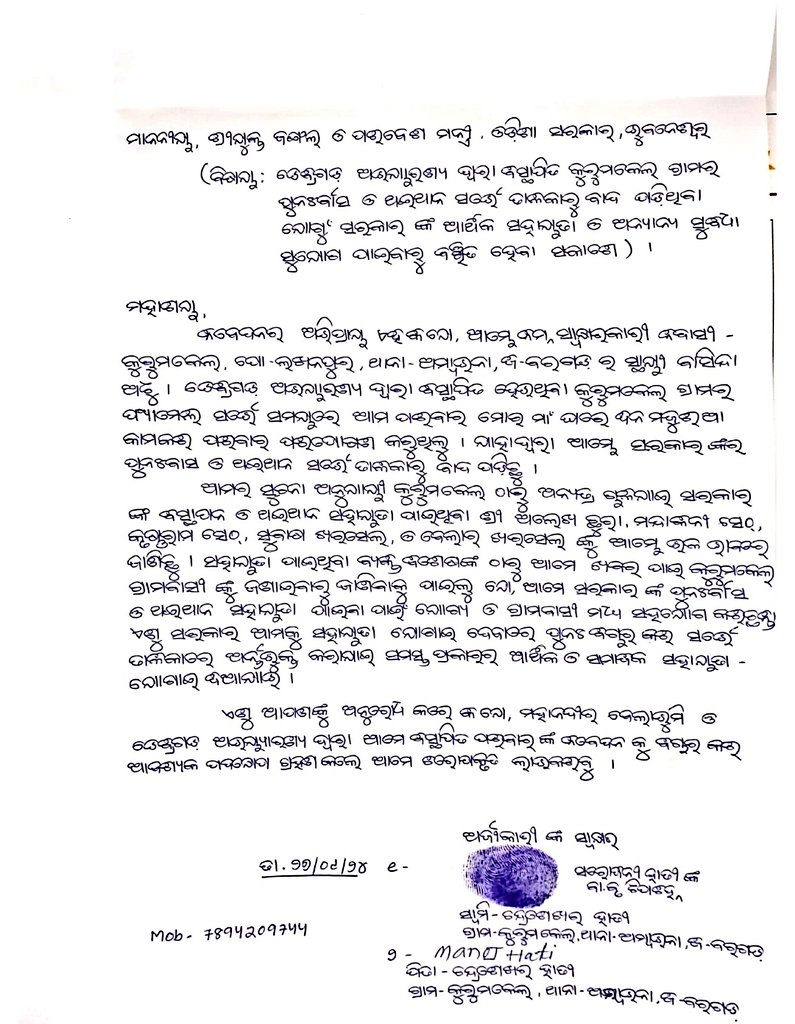 ମାନନୀୟ, ଶ୍ରୀଯୁକ୍ତ ଜଙ୍ଗଲ ଓ ପରିବେଶ ମନ୍ତ୍ରୀ, ଓଡ଼ିଶା ସରକାର, ଭୁବନେଶ୍ୱର
(ବିଷୟ: ଡେବ୍ରିଗଡ଼ ଅଭୟାରଣ୍ୟ ଦ୍ୱାରା ବିସ୍ଥାପିତ କୁରୁମକେଲ ଗ୍ରାମର
ପୁନଃର୍ବାସ ଓ ଥଇଥାନ ସର୍ଭେ ତାଲିକାରୁ ବାଦ ପଡ଼ିଥିବା
ଯୋଗୁଁ ସରକାର ଙ୍କ ଆର୍ଥିକ ସହାୟତା ଓ ଅନ୍ୟାନ୍ୟ ସୁବିଧା
ସୁଯୋଗ ପାଇବାରୁ ବଞ୍ଚିତ ହେବା ସକାଶେ) ।
ମହାଶୟ,
ନିବେଦନର ଅଭିପ୍ରାୟ ଏହିକି ଯେ, ଆମ୍ଭେ ନିମ୍ନ ସ୍ୱାକ୍ଷରକାରୀ ନିବାସୀ -
କୁରୁମକେଲ, ପୋ-ଲଖନପୁର, ଥାନା-ଅମ୍ବାଭନା, ଜି-ବରଗଡ଼ ର ସ୍ଥାୟୀ ବାସିନ୍ଦା
ଅଟୁ । ଡେବ୍ରିଗଡ଼ ଅଭୟାରଣ୍ୟ ଦ୍ୱାରା ବିସ୍ଥାପିତ ହେଉଥିବା କୁରୁମକେଲ ଗ୍ରାମର
ଫ୍ୟାମେଲି ସର୍ଭେ ସମୟରେ ଆମ ପରିବାର ମୋର ମା' ଘରେ ଦିନ ମଜୁରିଆ
କାମକରି ପରିବାର ପରିପୋଷଣ କରୁଥିଲୁ । ଯାହାଦ୍ୱାରା ଆମ୍ଭେ ସରକାର ଙ୍କର
ପୁନଃବାସ ଓ ଥଇଥାନ ସର୍ଭେ ତାଲିକାରୁ ବାଦ ପଡ଼ିଛୁ ।
ଆମର ସୂଚନା ଅନୁଯାୟୀ କୁରୁମକେଲ ଠାରୁ ଅନ୍ୟତ୍ର ଚାଲିଯାଇ ସରକାର
ଙ୍କ ବିସ୍ଥାପନ ଓ ଥଇଥାନ ସହାୟତା ପାଇଥିବା ଶ୍ରୀ ଆଲେଖ ଛୁରା, ମନ୍ଦାକିନୀ ସେଠ୍,
କୃପାରାମ ସେଠ୍, ସୁବାଶ ଖରସେଲ, ଓ କୈଳାସ ଖରସେଲ ଙ୍କୁ ଆମ୍ଭେ ଭଲ ଭାବରେ
ଜାଣିଛୁ । ସହାୟତା ପାଇଥିବା ବ୍ୟକ୍ତି ବିଶେଷଙ୍କ ଠାରୁ ଆମେ ଖବର ପାଇ କୁରୁମକେଲ
ଗ୍ରାମବାସୀ ଙ୍କୁ ଜଣାଇବାରୁ ଜାଣିବାକୁ ପାଇଲୁ ଯେ, ଆମେ ସରକାର ଙ୍କ ପୁନଃର୍ବାସ
ଓ ଥଇଥାନ ସହାୟତା ପାଇବା ପାଇଁ ଯୋଗ୍ୟ ଓ ଗ୍ରାମବାସୀ ମଧ୍ୟ ସହଯୋଗ କରୁଛନ୍ତି
ଏଣୁ ସରକାର ଆମକୁ ସହାୟତା ଯୋଗାଇ ଦେବାରେ ପୁନଃ ବିଚାର କରି ସର୍ଭେ
ତାଲିକାରେ ଅର୍ନ୍ତଭୁକ୍ତ କରାଯାଇ ସମସ୍ତ ପ୍ରକାରର ଆର୍ଥିକ ଓ ସମାଜିକ ସହାୟତା -
ଯୋଗାଇ ଦିଆଯାଉ ।
ଏଣୁ ଆପଣଙ୍କୁ ଅନୁରୋଧ କରେ କି ଯେ, ମହାନଦୀର ବେଲାଭୂମି ଓ
ଡେବ୍ରିଗଡ଼ ଅଭୟାରଣ୍ୟ ଦ୍ୱାରା ଆମେ ବିସ୍ଥାପିତ ପରିବାର ଙ୍କ ନିବେଦନ କୁ ବିଚାର କରି
ଆବଶ୍ୟକ ପଦକ୍ଷେପ ଗ୍ରହଣ କଲେ ଆମେ ଚିରୋପକୃତ ଲାଭକରିବୁ ।
ଅର୍ଜୀକାରୀ ଙ୍କ ସ୍ୱାକ୍ଷର
ତା. ୨୨/୦୪/୨୪ ୧- ସରୋଜନୀ ହାତୀ ଙ୍କ
ବା.ବୃ ଟିପଚିହ୍ନ
ସ୍ୱାମି-ଚନ୍ଦ୍ରଶେଖର ହାତୀ
Mob- 7894209744 ଗ୍ରାମ-କୁରୁମକେଲ, ଥାନା-ଅମ୍ବାଭନା, ଜି-ବରଗଡ଼
୨- Manoj Hati
ପିତା-ଚନ୍ଦ୍ରଶେଖର ହାତୀ
ଗ୍ରାମ-କୁରୁମକେଲ, ଥାନା-ଅମ୍ବାଭନା, ଜି-ବରଗଡ଼